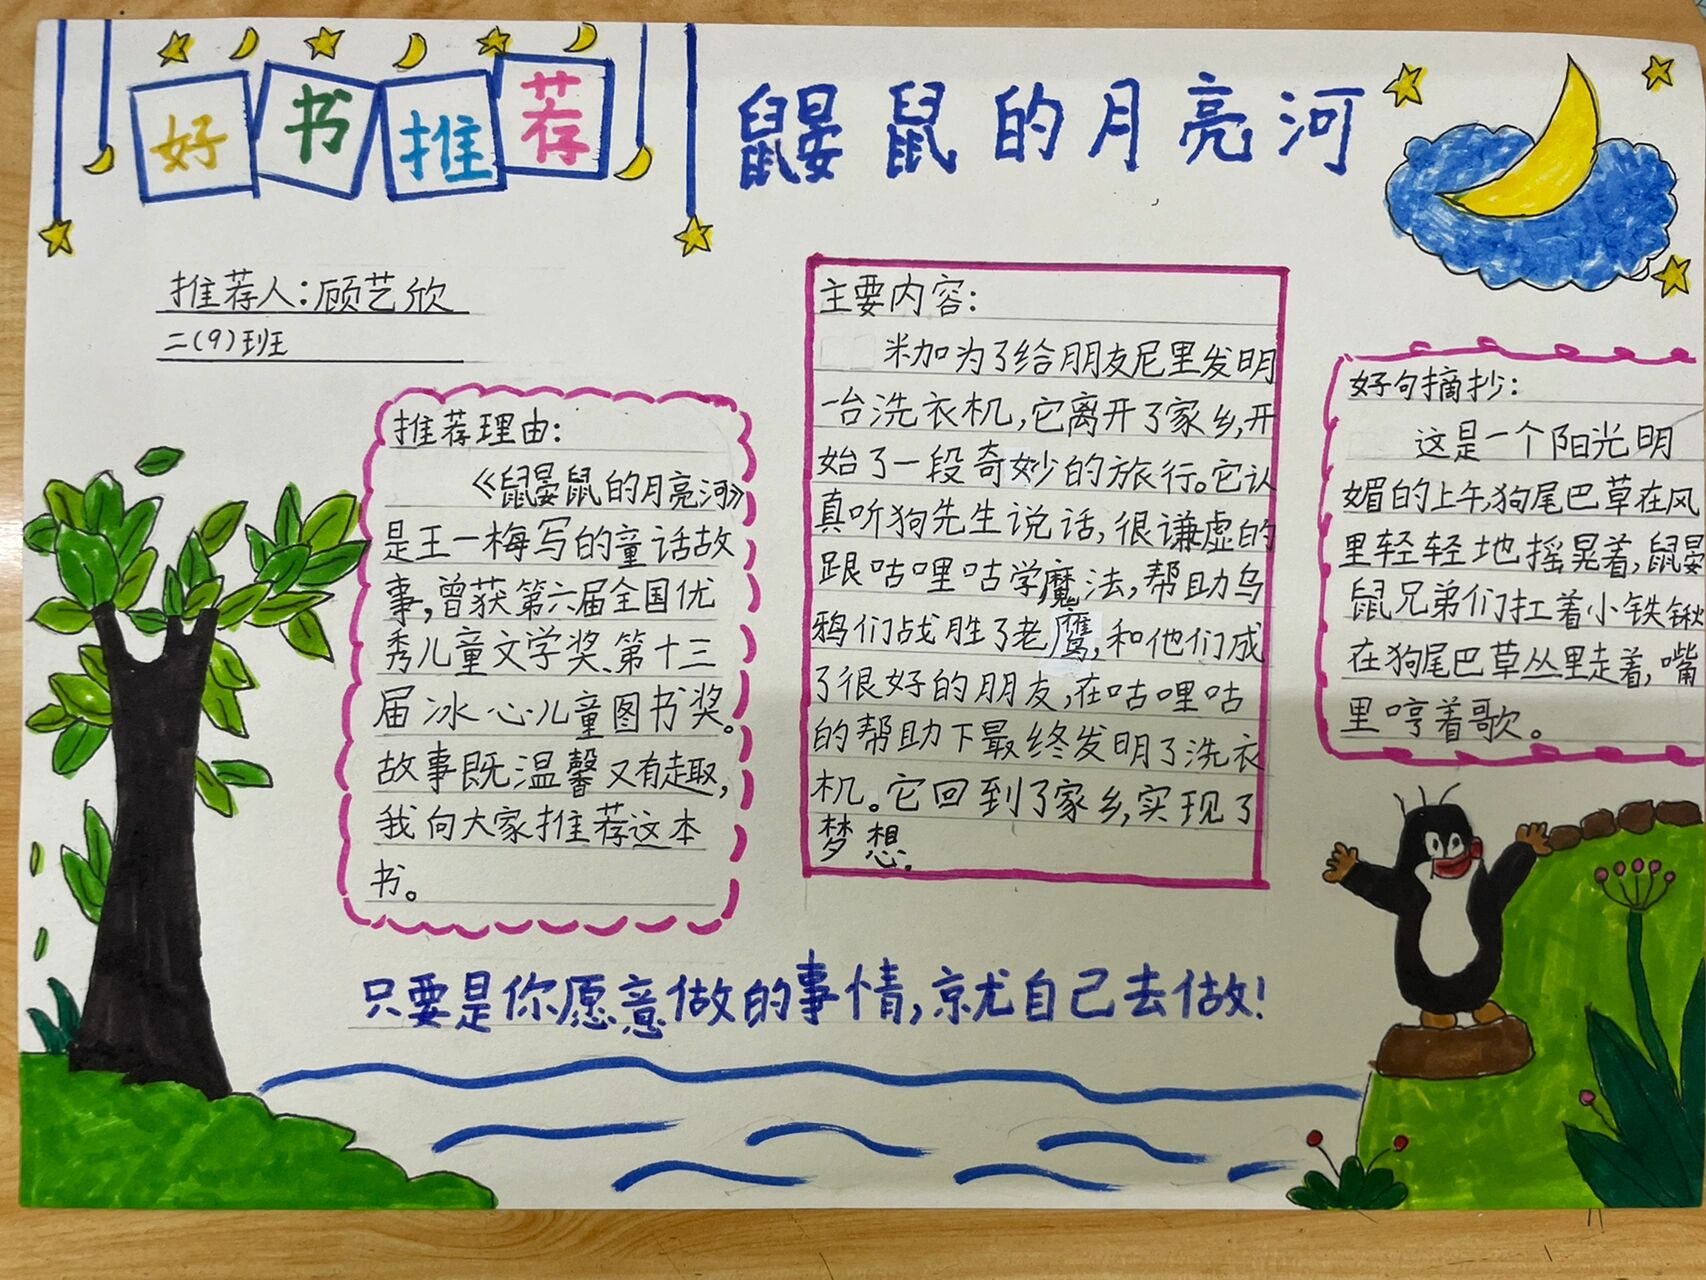 好书推荐
鼹鼠的月亮河
推荐人：顾艺欣
二（9）班
推荐理由：
《鼹鼠的月亮河》
是王一梅写的童话故
事，曾获第六届全国优
秀儿童文学奖、第十三
届冰心儿童图书奖。
故事既温馨又有趣，
我向大家推荐这本
书。
主要内容：
米加为了给朋友尼里发明
一台洗衣机，它离开了家乡，开
始了一段奇妙的旅行。它认
真听狗先生说话，很谦虚的
跟咕哩咕学魔法，帮助乌
鸦们战胜了老鹰，和他们成
了很好的朋友，在咕哩咕
的帮助下最终发明了洗衣
机。它回到了家乡，实现了
梦想。
好句摘抄：
这是一个阳光明
媚的上午，狗尾巴草在风
里轻轻地摇晃着，鼹
鼠兄弟们扛着小铁锹
在狗尾巴草丛里走着，嘴
里哼着歌。
只要是你愿意做的事情，就自己去做！